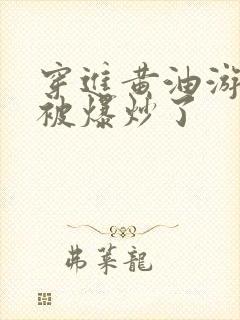 穿進黄油游
被爆炒了
弗萊龍